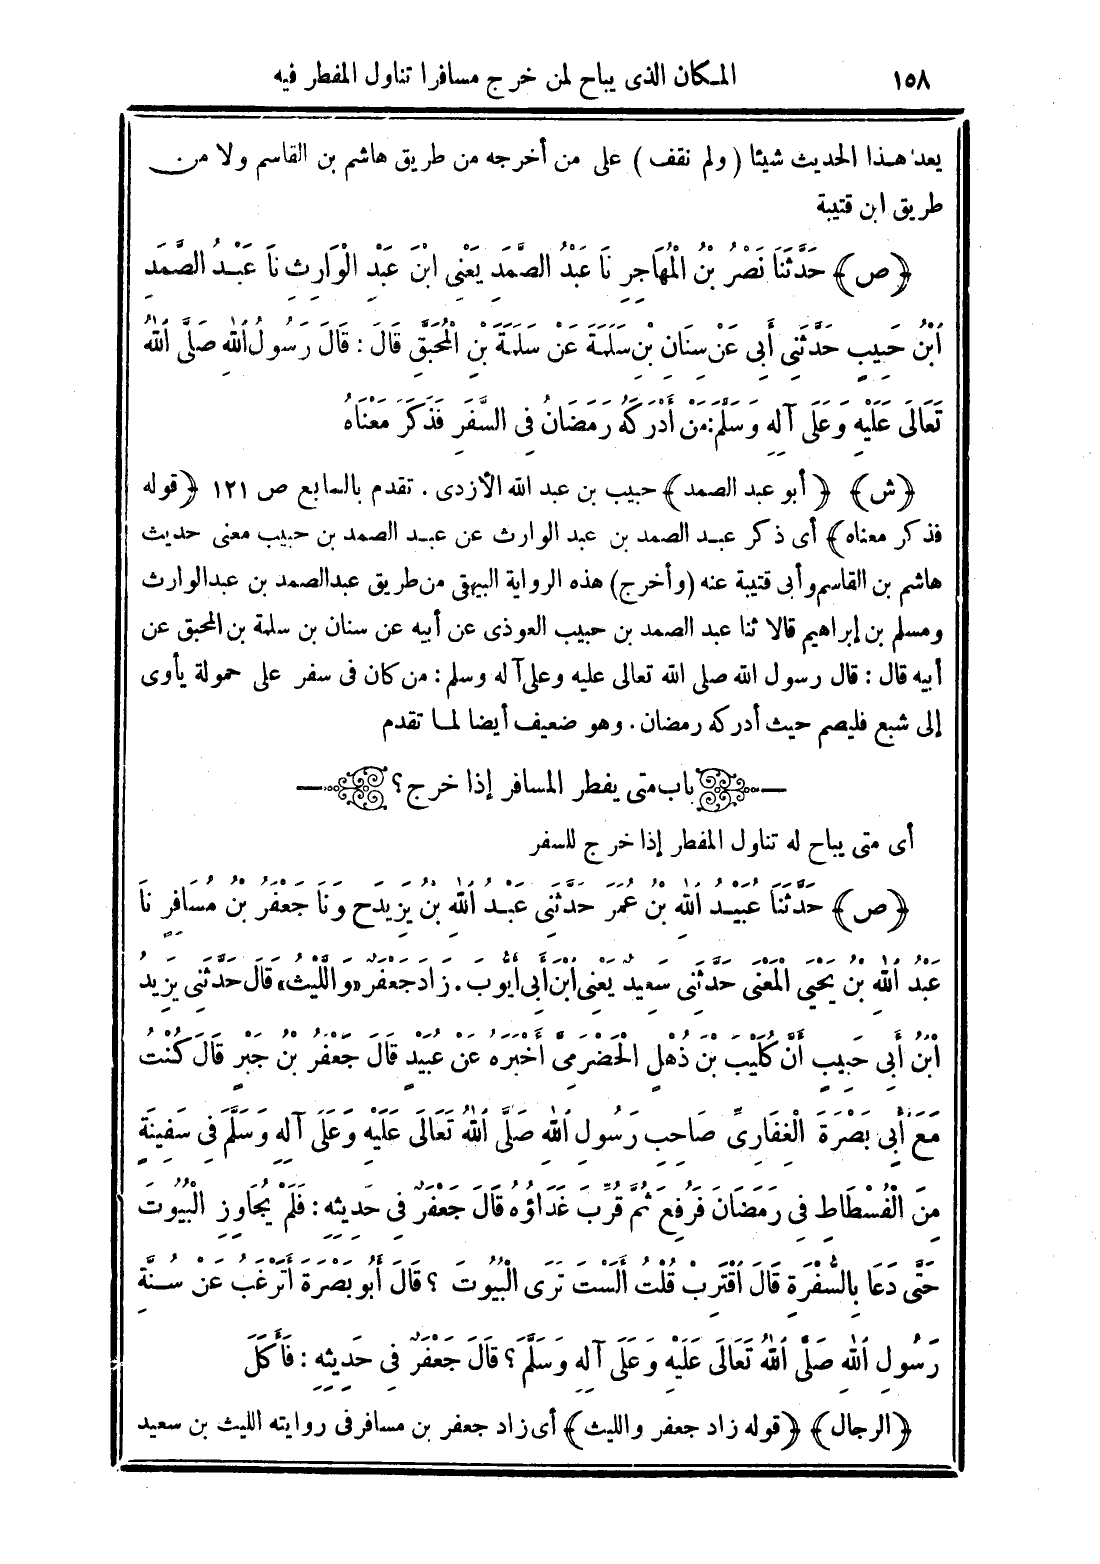 ١٥٨ المكان الذى يباح لمن خرج مسافرا تناول المفطر فيه
يعد هذا الحديث شيئا (ولم نقف) على من أخرجه من طريق هاشم بن القاسم ولا من
طريق ابن قتيبة
﴿ص﴾ حَدَّثَنَا نَصْرُ بْنُ الْمُهَاجِرِ نَا عَبْدُ الصَّمَدِ يَعْنِى ابْنَ عَبْدِ الْوَارِثِ نَا عَبْدُ الصَّمَدِ
ابْنُ حَبِيبٍ حَدَّثَنِى أَبِى عَنْ سِنَانِ بْنِ سَلَمَةَ عَنْ سَلَمَةَ بْنِ الْمُحَبَّقِ قَالَ : قَالَ رَسُولُ اللهِ صَلَّى اللهُ
تَعَالَى عَلَيْهِ وَعَلَى آلِهِ وَسَلَّمَ: مَنْ أَدْرَكَهُ رَمَضَانُ فِى السَّفَرِ فَذَكَرَ مَعْنَاهُ
﴿ش﴾ ﴿أبو عبد الصمد﴾ حبيب بن عبد الله الأزدى . تقدم بالسابع ص ١٢١ ﴿قوله
فذكر معناه﴾ أى ذكر عبد الصمد بن عبد الوارث عن عبد الصمد بن حبيب معنى حديث
هاشم بن القاسم وأبى قتيبة عنه (وأخرج) هذه الرواية البيهقى من طريق عبدالصمد بن عبدالوارث
ومسلم بن إبراهيم قالا ثنا عبد الصمد بن حبيب العوذى عن أبيه عن سنان بن سلمة بن المحبق عن
أبيه قال : قال رسول الله صلى الله تعالى عليه وعلى آله وسلم : من كان فى سفر على حمولة يأوى
إلى شبع فليصم حيث أدركه رمضان . وهو ضعيف أيضا لما تقدم
باب متى يفطر المسافر إذا خرج؟
أى متى يباح له تناول المفطر إذا خرج للسفر
﴿ص﴾ حَدَّثَنَا عُبَيْدُ اللهِ بْنُ عُمَرَ حَدَّثَنِى عَبْدُ اللهِ بْنُ يَزِيدَ ح وَنَا جَعْفَرُ بْنُ مُسَافِرٍ نَا
عَبْدُ اللهِ بْنُ يَحْيَى الْمَعْنَى حَدَّثَنِى سَعِيدٌ يَعْنِى ابْنَ أَبِى أَيُّوبَ . زَادَ جَعْفَرٌ «وَاللَّيْثُ» قَالَ حَدَّثَنِى يَزِيدُ
ابْنُ أَبِى حَبِيبٍ أَنَّ كُلَيْبَ بْنَ ذُهْلٍ الْحَضْرَمِىَّ أَخْبَرَهُ عَنْ عُبَيْدٍ قَالَ جَعْفَرُ بْنُ جَبْرٍ قَالَ كُنْتُ
مَعَ أَبِى بَصْرَةَ الْغِفَارِىِّ صَاحِبِ رَسُولِ اللهِ صَلَّى اللهُ تَعَالَى عَلَيْهِ وَعَلَى آلِهِ وَسَلَّمَ فِى سَفِينَةٍ
مِنَ الْفُسْطَاطِ فِى رَمَضَانَ فَرُفِعَ ثُمَّ قُرِّبَ غَدَاؤُهُ قَالَ جَعْفَرٌ فِى حَدِيثِهِ : فَلَمْ يُجَاوِزِ الْبُيُوتَ
حَتَّى دَعَا بِالسُّفْرَةِ قَالَ اقْتَرِبْ قُلْتُ أَلَسْتَ تَرَى الْبُيُوتَ ؟ قَالَ أَبُو بَصْرَةَ أَتَرْغَبُ عَنْ سُنَّةِ
رَسُولِ اللهِ صَلَّى اللهُ تَعَالَى عَلَيْهِ وَعَلَى آلِهِ وَسَلَّمَ ؟ قَالَ جَعْفَرٌ فِى حَدِيثِهِ : فَأَكَلَ
﴿الرجال﴾ ﴿قوله زاد جعفر والليث﴾ أى زاد جعفر بن مسافر فى روايته الليث بن سعيد